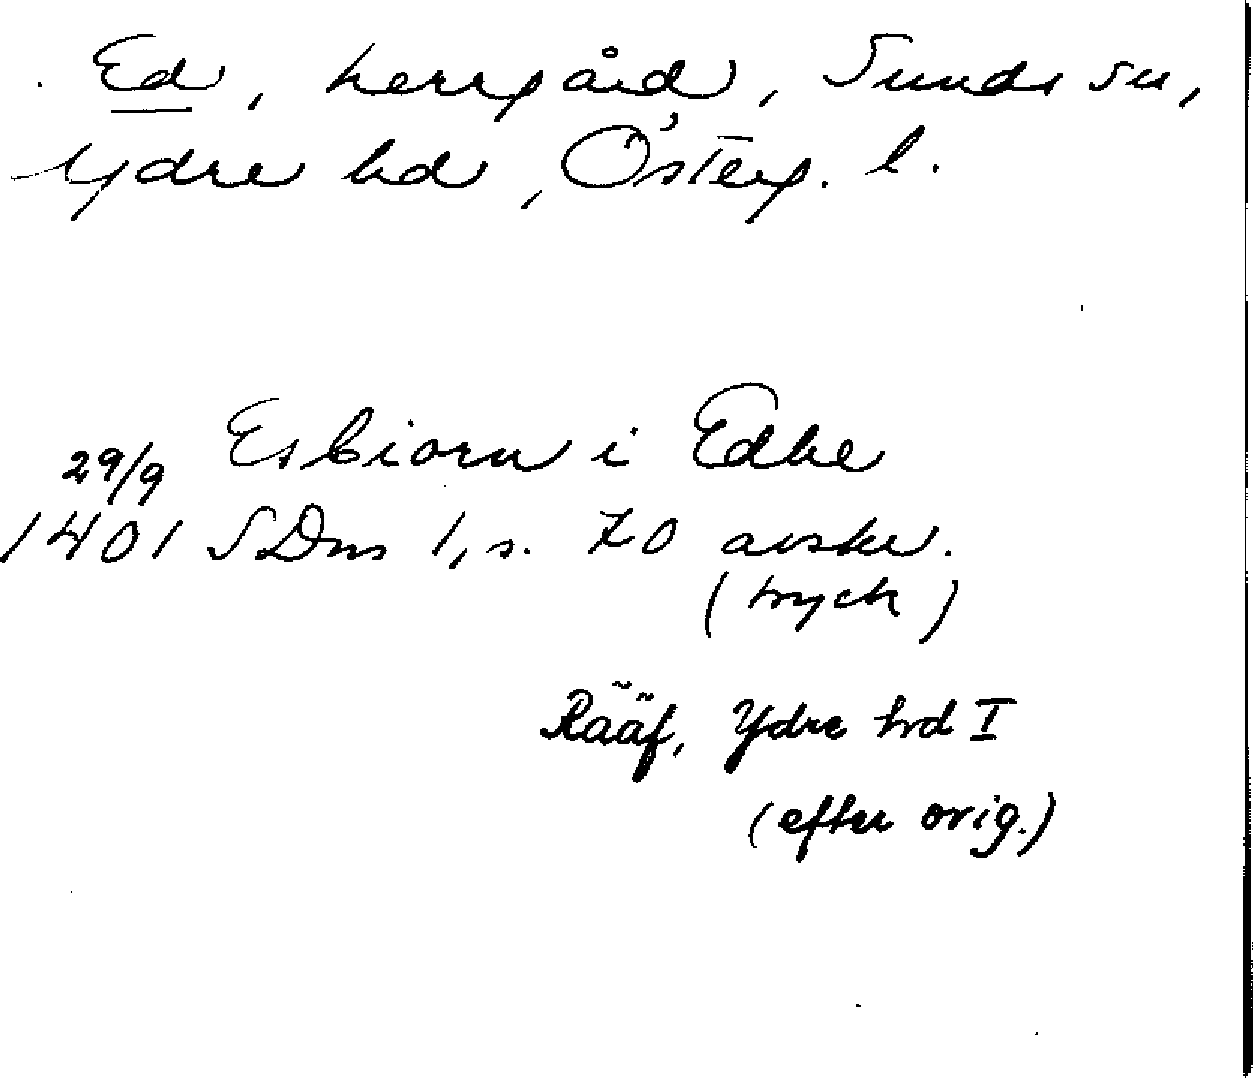 Ed, herrgård, Sunds sn,
Ydre hd, Österg. l.
Esbiorn i Edhe
29/9
1401 SDns 1, s. 70 avskr.
(tryck)
Rääf, Ydre hd I
(efter orig.)